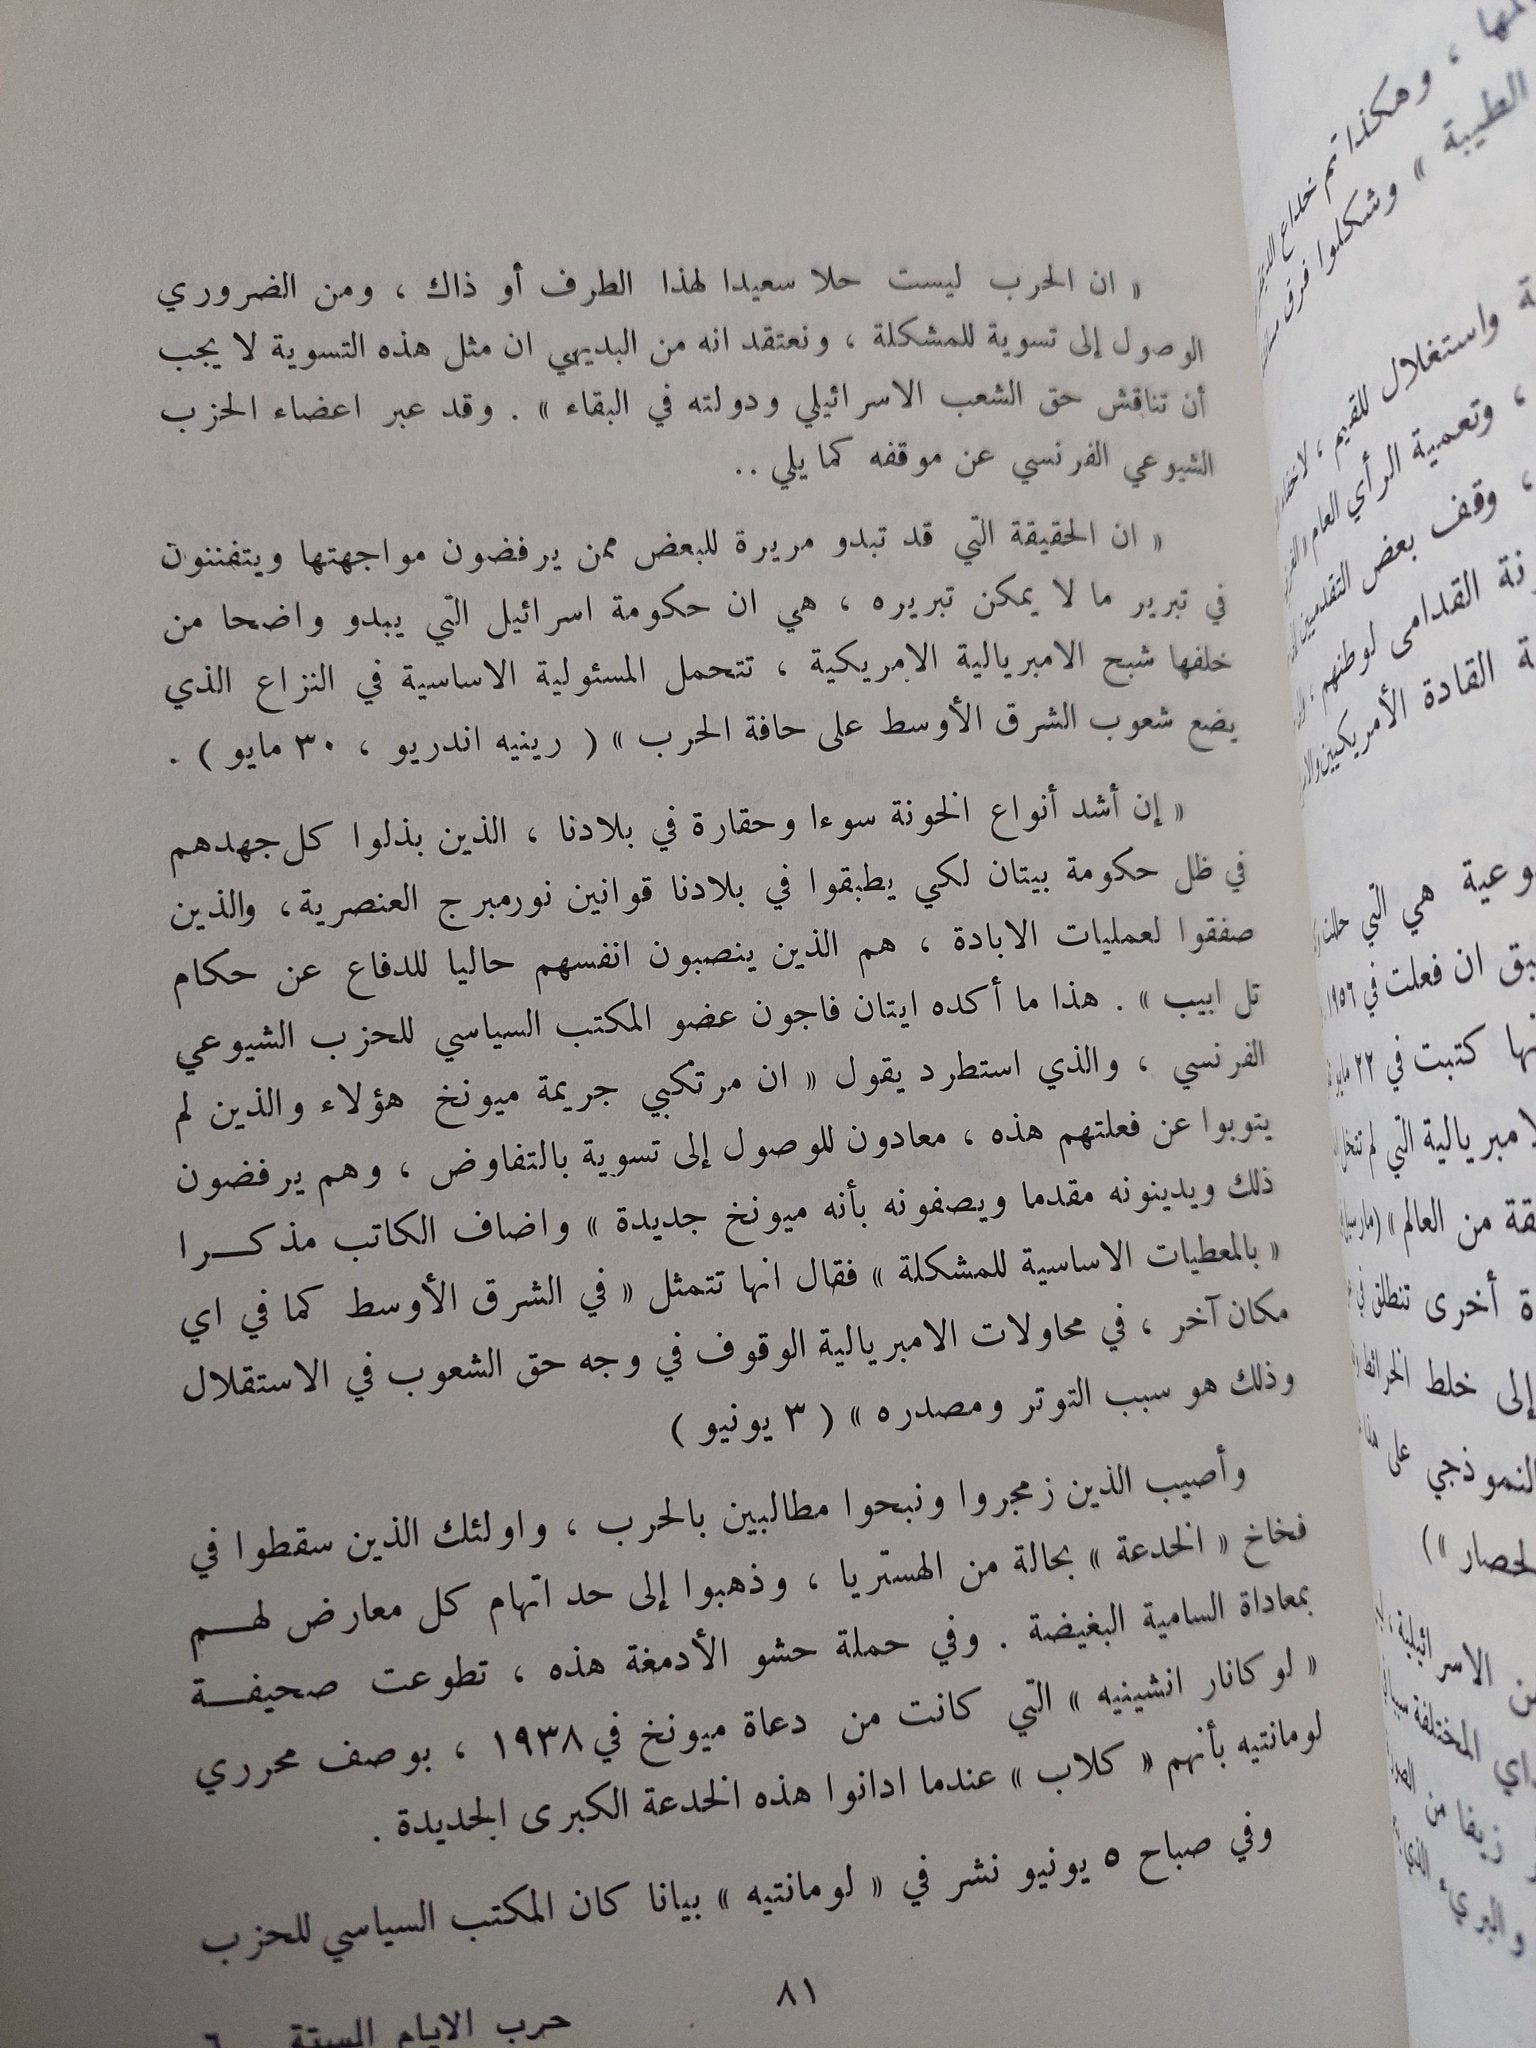 « ان الحرب ليست حلا سعيدا لهذا الطرف أو ذاك ، ومن الضروري
الوصول إلى تسوية للمشكلة ، ونعتقد انه من البديهي ان مثل هذه التسوية لا يجب
أن تناقش حق الشعب الاسرائيلي ودولته في البقاء » . وقد عبر اعضاء الحزب
الشيوعي الفرنسي عن موقفه كما يلي ..
« ان الحقيقة التي قد تبدو مريرة للبعض ممن يرفضون مواجهتها ويتفننون
في تبرير ما لا يمكن تبريره ، هي ان حكومة اسرائيل التي يبدو واضحا من
خلفها شبح الامبريالية الامريكية ، تتحمل المسئولية الاساسية في النزاع الذي
يضع شعوب الشرق الأوسط على حافة الحرب » ( رينيه اندريو ، ٣٠ مايو ) .
« إن أشد أنواع الخونة سوءا وحقارة في بلادنا ، الذين بذلوا كل جهدهم
في ظل حكومة بيتان لكي يطبقوا في بلادنا قوانين نورمبرج العنصرية ، والذين
صفقوا لعمليات الابادة ، هم الذين ينصبون انفسهم حاليا للدفاع عن حكام
تل ابيب » . هذا ما أكده ايتان فاجون عضو المكتب السياسي للحزب الشيوعي
الفرنسي ، والذي استطرد يقول « ان مرتكبي جريمة ميونخ هؤلاء والذين لم
يتوبوا عن فعلتهم هذه ، معادون للوصول إلى تسوية بالتفاوض ، وهم يرفضون
ذلك ويدينونه مقدما ويصفونه بأنه ميونخ جديدة » واضاف الكاتب مذكرا
« بالمعطيات الاساسية للمشكلة » فقال انها تتمثل « في الشرق الأوسط كما في اي
مكان آخر ، في محاولات الامبريالية الوقوف في وجه حق الشعوب في الاستقلال
وذلك هو سبب التوتر ومصدره » ( ٣ يونيو )
وأصيب الذين زمجروا ونبحوا مطالبين بالحرب ، واولئك الذين سقطوا في
فخاخ « الخدعة » بحالة من الهستريا ، وذهبوا إلى حد اتهام كل معارض لهم
بمعاداة السامية البغيضة . وفي حملة حشو الأدمغة هذه ، تطوعت صحيفة
« لو كانار انشينيه » التي كانت من دعاة ميونخ في ١٩٣٨ ، بوصف محرري
لومانتيه بأنهم « كلاب » عندما ادانوا هذه الخدعة الكبرى الجديدة .
وفي صباح ٥ يونيو نشر في « لومانتيه » بيانا كان المكتب السياسي للحزب
٨١
حرب الايام الستة ٦
، وهكذا تم خداع
الطيبة » وشكلوا فرق
واستغلال للقيم ،
، وتعمية الرأي العام
، وقف بعض التقدميين
القدامى لوطنهم ،
القادة الأمريكيين
هي التي
ان فعلت في ١٩٥٦
كتبت في ٢٢ مايو
التي لم
من العالم »
أخرى تنطلق في
إلى خلط
النموذجي على
المختلفة
زيفا من